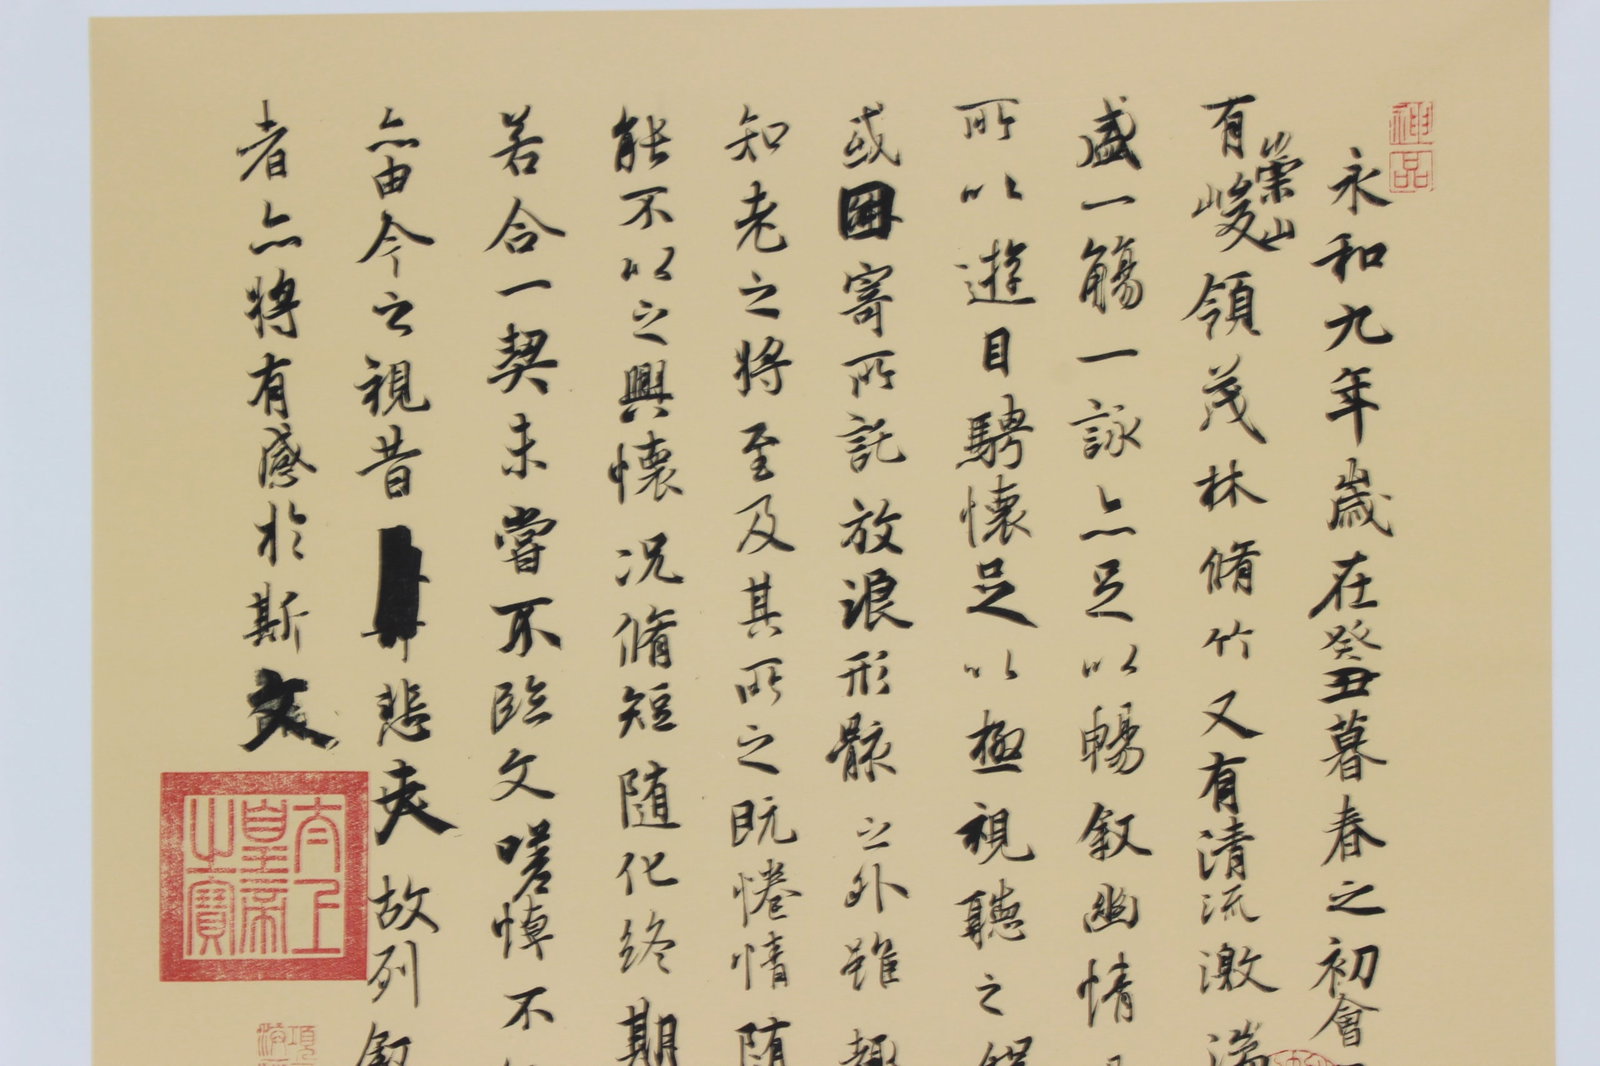 神品
永和九年歲在癸丑暮春之初會
有崇山峻領茂林脩竹又有清流激湍
盛一觴一詠亦足以暢敘幽情
所以遊目騁懷足以極視聽之
或因寄所託放浪形骸之外雖趣
知老之將至及其所之既惓情隨
能不以之興懷況脩短隨化終期
若合一契未嘗不臨文嗟悼不
亦由今之視昔悲夫故列叙
者亦將有感於斯文
太上皇帝之寶